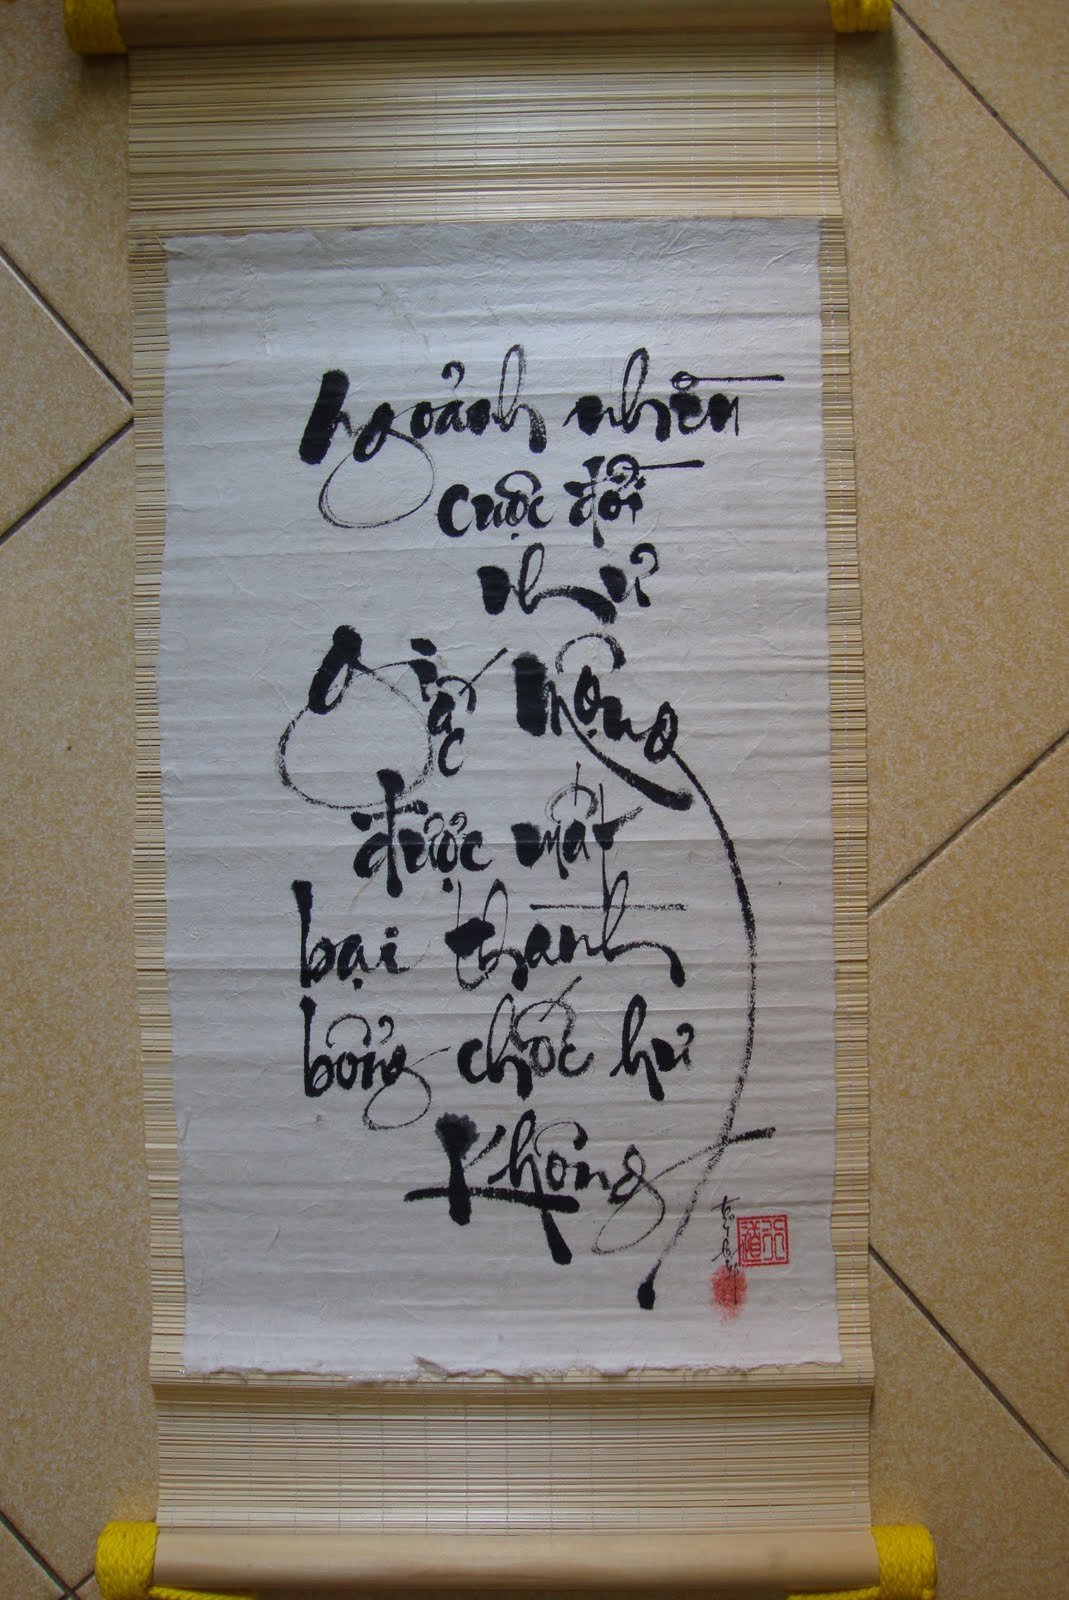 ngoảnh nhìn
cuộc đời
như
Giấc mộng
được mất
bại thành
bỗng chốc hư
Không